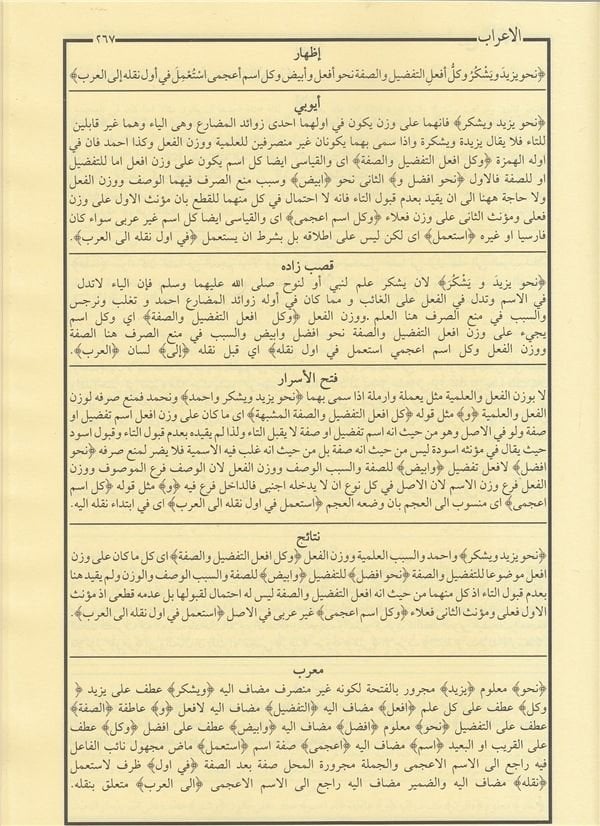 الاعراب
٢٦٧
إظهار
﴿نحو يزيدَ ويَشْكُرُ وكلُّ أفعلِ التفضيل والصفة نحو أفعل وأبيض وكل اسم أعجمى اسْتُعْمِلَ في أول نقله إلى العرب﴾
أيوبي
﴿نحو يزيد ويشكر﴾ فانهما على وزن يكون في اولهما احدى زوائد المضارع وهى الياء وهما غير قابلين
للتاء فلا يقال يزيدة ويشكرة واذا سمى بهما يكونان غير منصرفين للعلمية ووزن الفعل وكذا احمد فان في
اوله الهمزة ﴿وكل افعل التفضيل والصفة﴾ اى والقياسى ايضا كل اسم يكون على وزن افعل اما للتفضيل
او للصفة فالاول ﴿نحو افضل و﴾ الثانى نحو ﴿ابيض﴾ وسبب منع الصرف فيهما الوصف ووزن الفعل
ولا حاجة ههنا الى ان يقيد بعدم قبول التاء فانه لا احتمال في كل منهما للقطع بان مؤنث الاول على وزن
فعلى ومؤنث الثانى على وزن فعلاء ﴿وكل اسم اعجمى﴾ اى والقياسى ايضا كل اسم غير عربى سواء كان
فارسيا او غيره ﴿استعمل﴾ اى لكن ليس على اطلاقه بل بشرط ان يستعمل ﴿في اول نقله الى العرب﴾.
قصب زاده
﴿نحو يزيدَ و يَشْكُرَ﴾ لان يشكر علم لنبي أو لنوح صلى الله عليهما وسلم فإن الياء لاتدل
في الاسم وتدل في الفعل على الغائب و مما كان في أوله زوائد المضارع احمد و تغلب ونرجس
والسبب في منع الصرف هنا العلم .ووزن الفعل ﴿وكل افعل التفضيل والصفة﴾ اي وكل اسم
يجيء على وزن افعل التفضيل والصفة نحو افضل وابيض والسبب في منع الصرف هنا الصفة
ووزن الفعل وكل اسم اعجمي استعمل في اول نقله﴾ اي قبل نقله ﴿إلى﴾ لسان ﴿العرب﴾.
فتح الأسرار
لا بوزن الفعل والعلمية مثل يعملة وارملة اذا سمى بهما ﴿نحو يزيد ويشكر واحمد﴾ ونحمد فمنع صرفه لوزن
الفعل والعلمية ﴿و﴾ مثل قوله ﴿كل افعل التفضيل والصفة المشبهة﴾ اى ما كان على وزن افعل اسم تفضيل او
صفة ولو في الاصل وهو من حيث انه اسم تفضيل او صفة لا يقبل التاء ولذا لم يقيده بعدم قبول التاء وقبول اسود
حيث يقال في مؤنثه اسودة ليس من حيث انه صفة بل من حيث انه غلب فيه الاسمية فلا يضر لمنع صرفه ﴿نحو
افضل﴾ لافعل تفضيل ﴿وابيض﴾ للصفة والسبب الوصف ووزن الفعل لان الوصف فرع الموصوف ووزن
الفعل فرع وزن الاسم لان الاصل في كل نوع ان لا يدخله اجنبي فالداخل فرع فيه ﴿و﴾ مثل قوله ﴿كل اسم
اعجمى﴾ اى منسوب الى العجم بان وضعه العجم ﴿استعمل في اول نقله الى العرب﴾ اى في ابتداء نقله اليه.
نتائج
﴿نحو يزيد ويشكر﴾ واحمد والسبب العلمية ووزن الفعل ﴿وكل افعل التفضيل والصفة﴾ اى كل ما كان على وزن
افعل موضوعا للتفضيل والصفة ﴿نحو افضل﴾ للتفضيل ﴿وابيض﴾ للصفة والسبب الوصف والوزن ولم يقيد هنا
بعدم قبول التاء اذ كل منهما من حيث انه افعل التفضيل والصفة ليس له احتمال لقبولها بل عدمه قطعى اذ مؤنث
الاول فعلى ومؤنث الثانى فعلاء ﴿وكل اسم اعجمى﴾ غير عربى في الاصل ﴿استعمل في اول نقله الى العرب﴾.
معرب
﴿نحو﴾ معلوم ﴿يزيد﴾ مجرور بالفتحة لكونه غير منصرف مضاف اليه ﴿ويشكر﴾ عطف على يزيد ﴿
وكل﴾ عطف على كل علم ﴿افعل﴾ مضاف اليه ﴿التفضيل﴾ مضاف اليه لافعل ﴿و﴾ عاطفة ﴿الصفة﴾
عطف على التفضيل ﴿نحو﴾ معلوم ﴿افضل﴾ مضاف اليه ﴿وابيض﴾ عطف على افضل ﴿وكل﴾ عطف
على القريب او البعيد ﴿اسم﴾ مضاف اليه ﴿اعجمى﴾ صفة اسم ﴿استعمل﴾ ماض مجهول نائب الفاعل
فيه راجع الى الاسم الاعجمى والجملة مجرورة المحل صفة بعد الصفة ﴿في اول﴾ ظرف لاستعمل
﴿نقله﴾ مضاف اليه والضمير مضاف اليه راجع الى الاسم الاعجمى ﴿الى العرب﴾ متعلق بنقله.